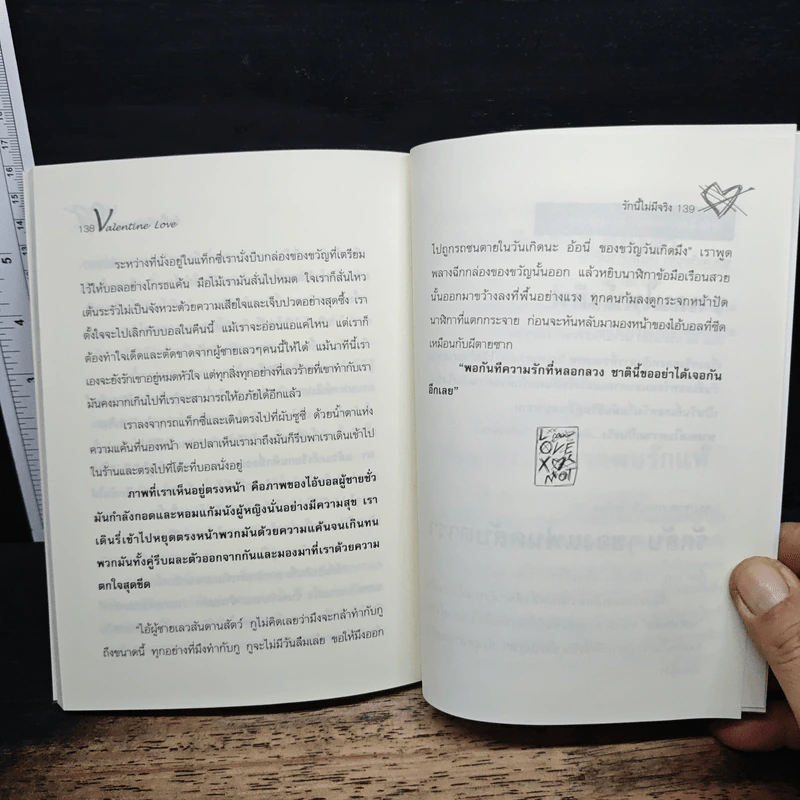 138 Valentine Love
ระหว่างที่นั่งอยู่ในแท็กซี่เรานั่งบีบกล่องของขวัญที่เตรียม
ไว้ให้บอลอย่างโกรธแค้น มือไม้เรามันสั่นไปหมด ใจเราก็สั่นไหว
เต้นระรัวไม่เป็นจังหวะด้วยความเสียใจและเจ็บปวดอย่างสุดซึ้ง เรา
ตั้งใจจะไปเลิกกับบอลในคืนนี้ แม้เราจะอ่อนแอแค่ไหน แต่เราก็
ต้องทำใจเด็ดและตัดขาดจากผู้ชายเลวๆคนนี้ให้ได้ แม้นาทีนี้เรา
เองจะยังรักเขาอยู่หมดหัวใจ แต่ทุกสิ่งทุกอย่างที่เลวร้ายที่เขาทำกับเรา
มันคงมากเกินไปที่เราจะสามารถให้อภัยได้อีกแล้ว
เราลงจากรถแท็กซี่และเดินตรงไปที่ผับซูซี่ ด้วยน้ำตาแห่ง
ความแค้นที่นองหน้า พอปลาเห็นเรามาถึงมันก็รีบพาเราเดินเข้าไป
ในร้านและตรงไปที่โต๊ะที่บอลนั่งอยู่
ภาพที่เราเห็นอยู่ตรงหน้า คือภาพของไอ้บอลผู้ชายชั่ว
มันกำลังกอดและหอมแก้มนังผู้หญิงนั่นอย่างมีความสุข เรา
เดินรี่เข้าไปหยุดตรงหน้าพวกมันด้วยความแค้นจนเกินทน
พวกมันทั้งคู่รีบผละตัวออกจากกันและมองมาที่เราด้วยความ
ตกใจสุดขีด
"ไอ้ผู้ชายเลวสันดานสัตว์ กูไม่คิดเลยว่ามึงจะกล้าทำกับกู
ถึงขนาดนี้ ทุกอย่างที่มึงทำกับกู กูจะไม่มีวันลืมเลย ขอให้มึงออก
รักนี้ไม่มีจริง 139
ไปถูกรถชนตายในวันเกิดนะ อ้อนี่ ของขวัญวันเกิดมึง" เราพูด
พลางฉีกกล่องของขวัญนั้นออก แล้วหยิบนาฬิกาข้อมือเรือนสวย
นั้นออกมาขว้างลงที่พื้นอย่างแรง ทุกคนก้มลงดูกระจกหน้าปัด
นาฬิกาที่แตกกระจาย ก่อนจะหันหลับมามองหน้าของไอ้บอลที่ซีด
เหมือนกับผีตายซาก
"พอกันทีความรักที่หลอกลวง ชาตินี้ขออย่าได้เจอกัน
อีกเลย"